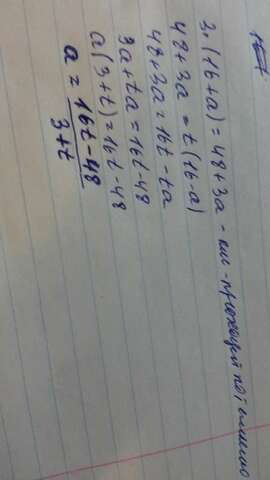 3·(16+a) = 48+3a - км - проходит по течению
48+3a = t(16-a)
48+3a = 16t - ta
3a+ta = 16t-48
a(3+t) = 16t-48
a = 16t-48 / 3+t